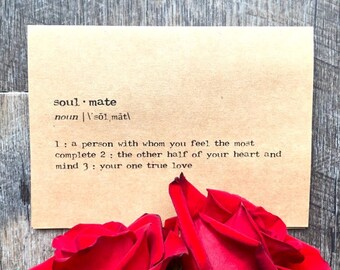 soul · mate
noun | \ˈsōlˌmāt\
1 : a person with whom you feel the most
complete 2 : the other half of your heart and
mind 3 : your one true love